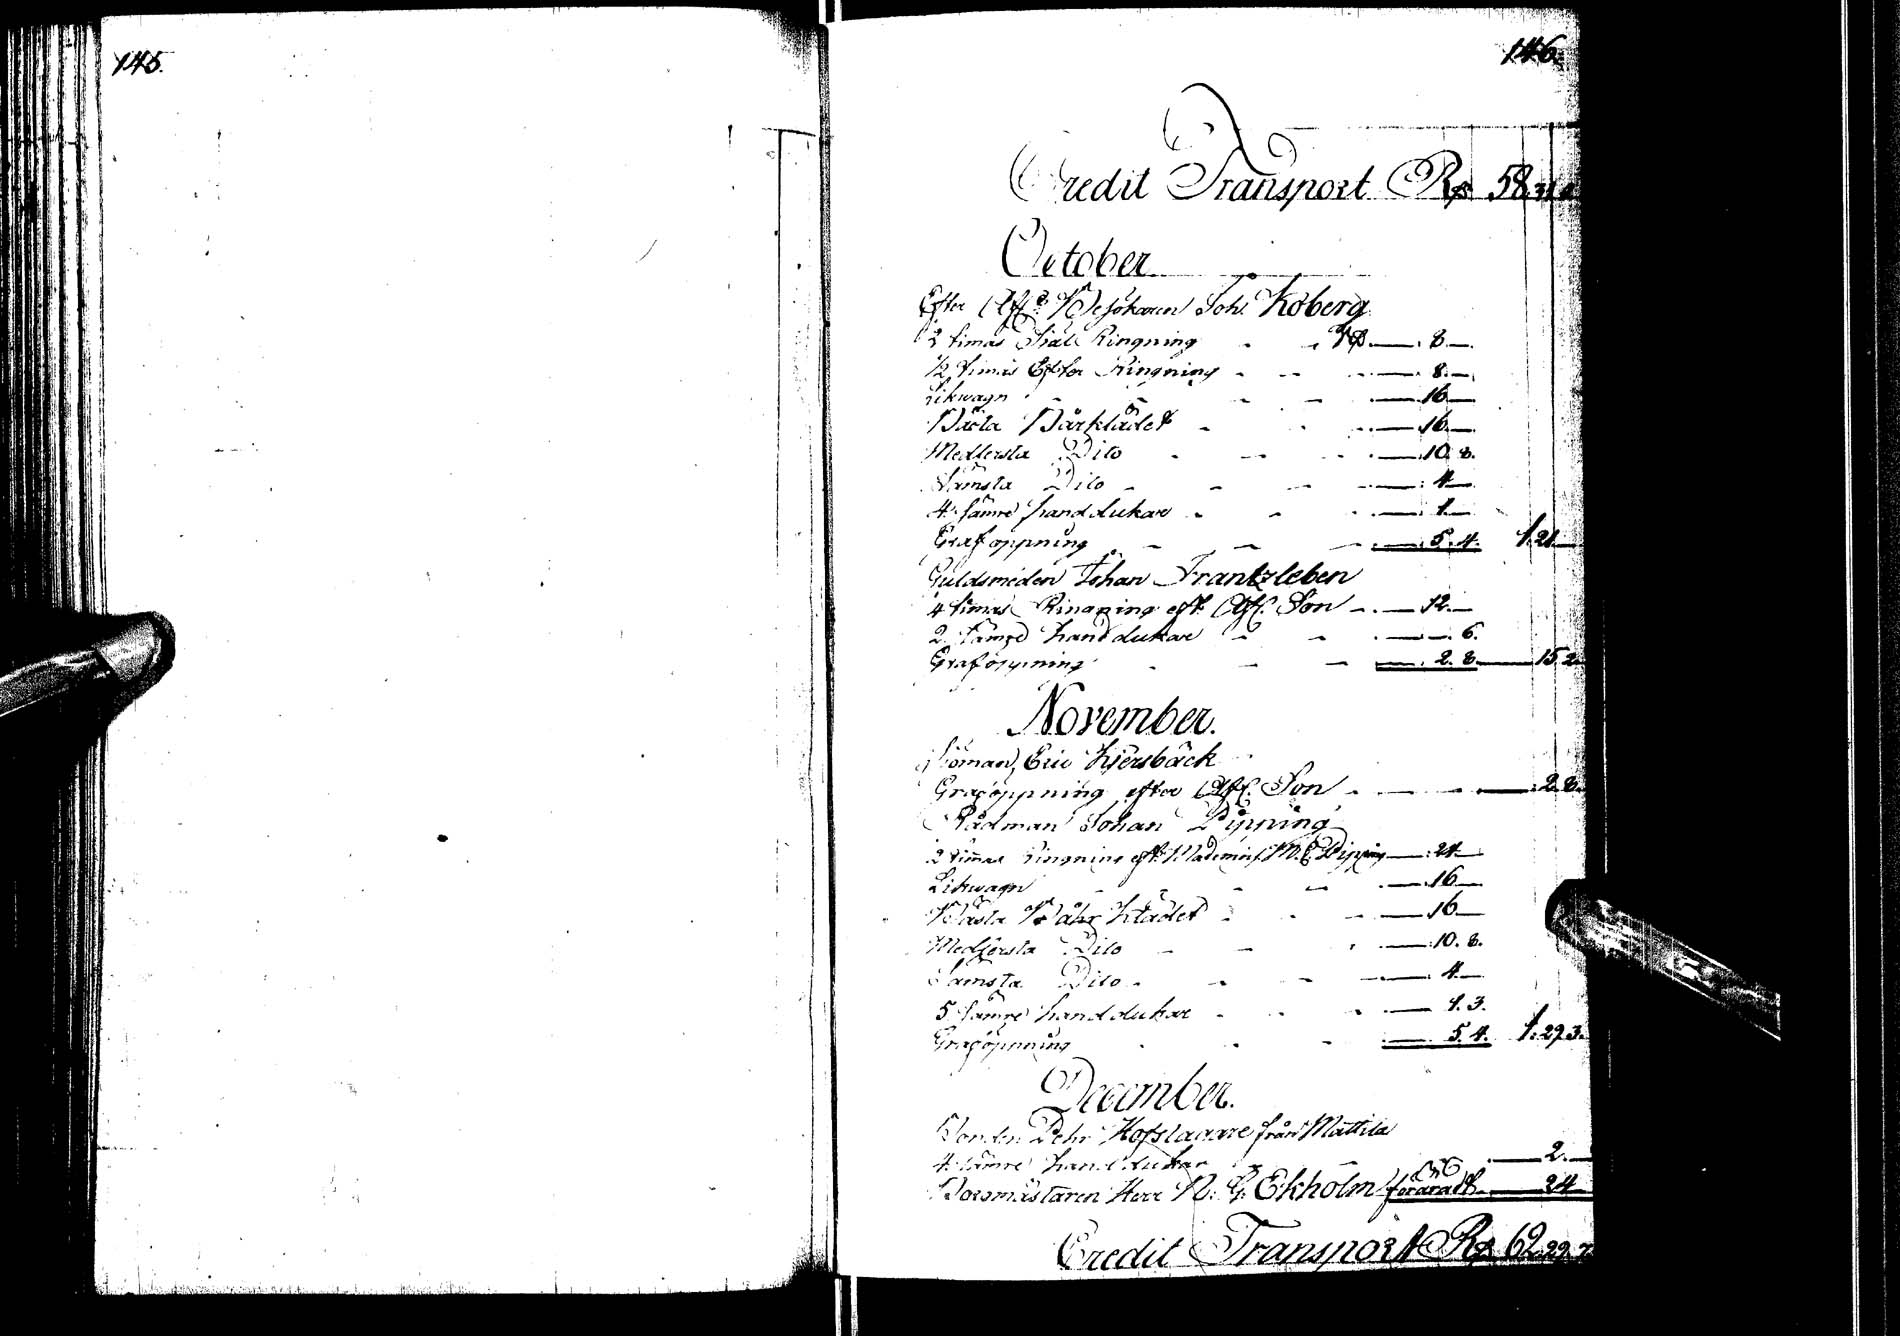 145.
146.
Credit Transport Rß 58.31.
October
Efter Afl: Besökaren Joh. Koberg
2 timas Siäl Ringning — 8 —
½ timas Efter Ringning — 8 —
Likwagn — 16 —
Bästa Bårklädet — 16 —
Medlersta Dito — 10. 8.
Sämsta Dito — 4 —
4. sämre handdukar — 1 —
Graföppning — 5. 4. 1.21 —
Guldsmeden Johan Frantzleben
4 timas Ringning eft. Afl. Son — 12 —
2. sämre handdukar — 6.
Graföppning — 2. 8 — 15 2.
November.
Sjöman, Eric Kjersbäck
Graföppning efter Afl. Son — 2. 8.
Rådman Johan Pipping
2 timas Ringning eft. M. C. Pipping — 24 —
Likwagn — 16 —
Bästa Båhr Klädet — 16 —
Medlersta Dito — 10. 8.
Sämsta Dito — 4 —
5 sämre handdukar — 1. 3.
Graföppning — 5. 4. 1. 29 3.
December.
Bonden Pehr Hofslagare från Mattila
4. sämre handdukar — 2. —
Borgmästaren Herr N: G: Ekholm föräradt — 24 —
Credit Transport Rß 62.29.